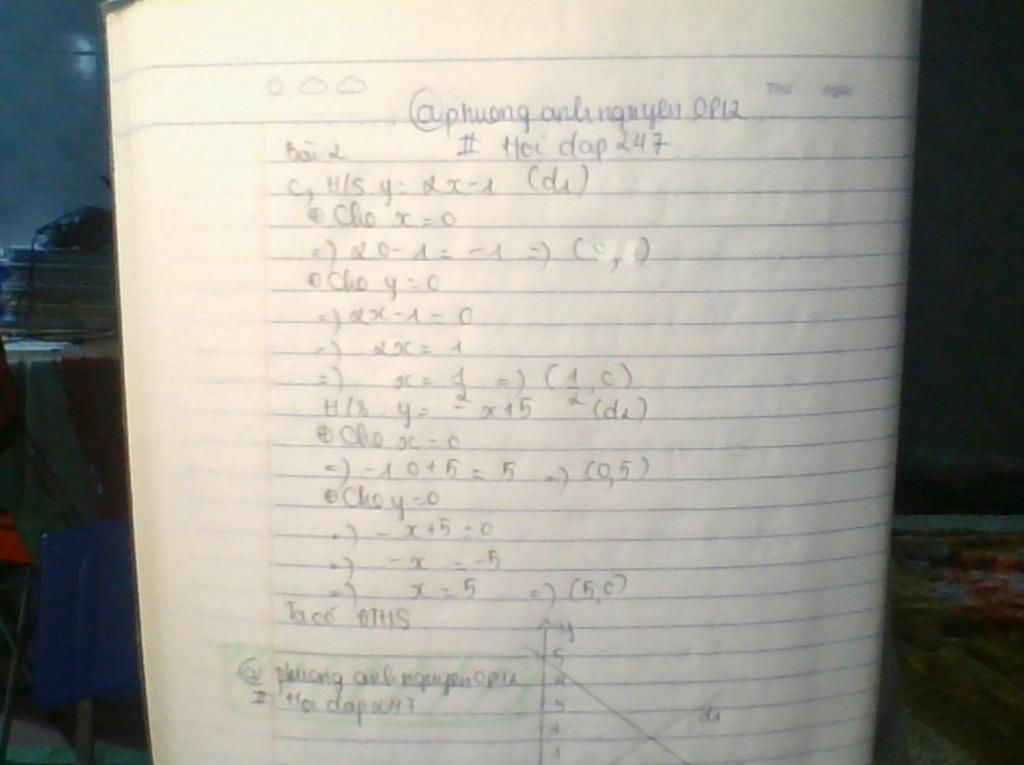 Thứ ngày
@phuonganhnguyen0812
II Hoidap247
Bài 2
c, H/S y = 2x-1 (d1)
Cho x = 0
=) 2.0-1 = -1 =)
Cho y = 0
=) 2x-1 = 0
=) 2x = 1
=) x = 1/2 =) (1/2, 0)
H/S y = -x+5 (d2)
Cho x = 0
=) -1.0+5 = 5 =) (0,5)
Cho y = 0
=) -x+5 = 0
=) -x = -5
=) x = 5 =) (5,0)
Ta có ĐTHS
y
5
@phuonganhnguyen0812
4
II Hoidap247
3
d1
2
1